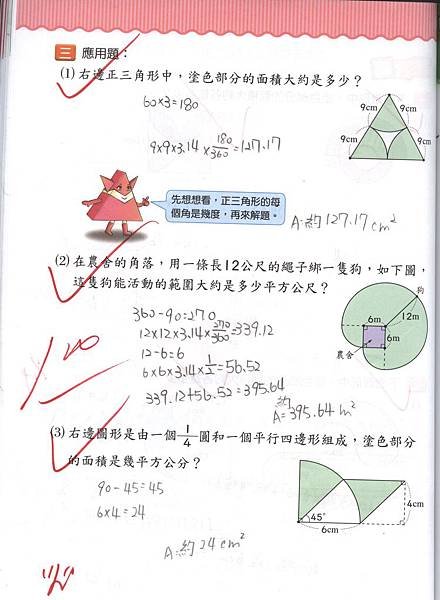 三 應用題：
(1) 右邊正三角形中，塗色部分的面積大約是多少？
60×3=180
9×9×3.14×180/360=127.17
9cm 9cm
9cm 9cm
先想想看，正三角形的每
個角是幾度，再來解題。
A:約127.17cm²
(2) 在農舍的角落，用一條長12公尺的繩子綁一隻狗，如下圖，
這隻狗能活動的範圍大約是多少平方公尺？
狗
12m
6m
6m
農舍
360-90=270
12×12×3.14×270/360=339.12
12-6=6
6×6×3.14×1/2=56.52
339.12+56.52=395.64
A=約395.64m²
100
(3) 右邊圖形是由一個1/4圓和一個平行四邊形組成，塗色部分
的面積是幾平方公分？
90-45=45
6×4=24
45°
4cm
6cm
A:約24cm²